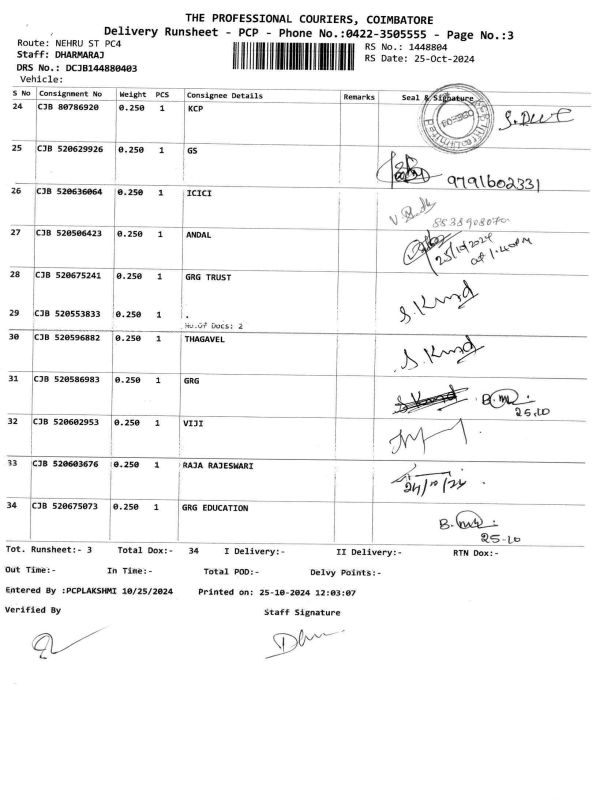 THE PROFESSIONAL COURIERS, COIMBATORE
Delivery Runsheet - PCP - Phone No.:0422-3505555 - Page No.:3
Route: NEHRU ST PC4 RS No.: 1448804
Staff: DHARMARAJ RS Date: 25-Oct-2024
DRS No.: DCJB144880403
Vehicle:
S No Consignment No Weight PCS Consignee Details Remarks Seal & Signature
24 CJB 80786920 0.250 1 KCP
25 CJB 520629926 0.250 1 GS 9791602331
26 CJB 520636064 0.250 1 ICICI
27 CJB 520506423 0.250 1 ANDAL 25/10/2024
28 CJB 520675241 0.250 1 GRG TRUST
29 CJB 520553833 0.250 1 .
No.Of Docs: 2
30 CJB 520596882 0.250 1 THAGAVEL
31 CJB 520586983 0.250 1 GRG
25.10
32 CJB 520602953 0.250 1 VIJI
33 CJB 520603676 0.250 1 RAJA RAJESWARI
24/10/24
34 CJB 520675073 0.250 1 GRG EDUCATION
25-10
Tot. Runsheet:- 3 Total Dox:- 34 I Delivery:- II Delivery:- RTN Dox:-
Out Time:- In Time:- Total POD:- Delvy Points:-
Entered By :PCPLAKSHMI 10/25/2024 Printed on: 25-10-2024 12:03:07
Verified By Staff Signature